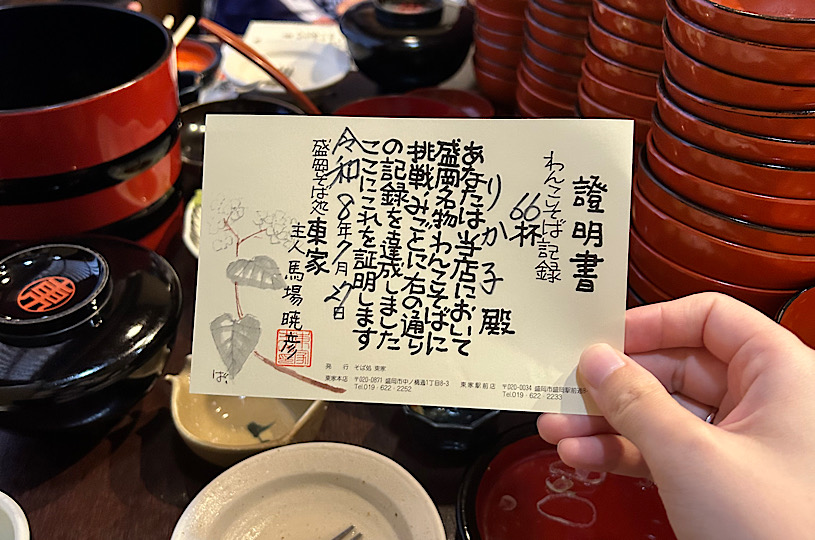 證明書
わんこそば記録
66杯
りか子殿
あなたは当店において
盛岡名物わんこそばに
挑戦みごとに右の通り
の記録を達成しました
ここにこれを証明します
令和8年7月27日
盛岡そば処 東家
主人 馬場暁彦
ば
発行 そば処 東家
東家本店 〒020-0871 盛岡市中ノ橋通1丁目8-3
Tel.019・622・2252
東家駅前店 〒020-0034 盛岡市盛岡駅前通
Tel.019・622・2233